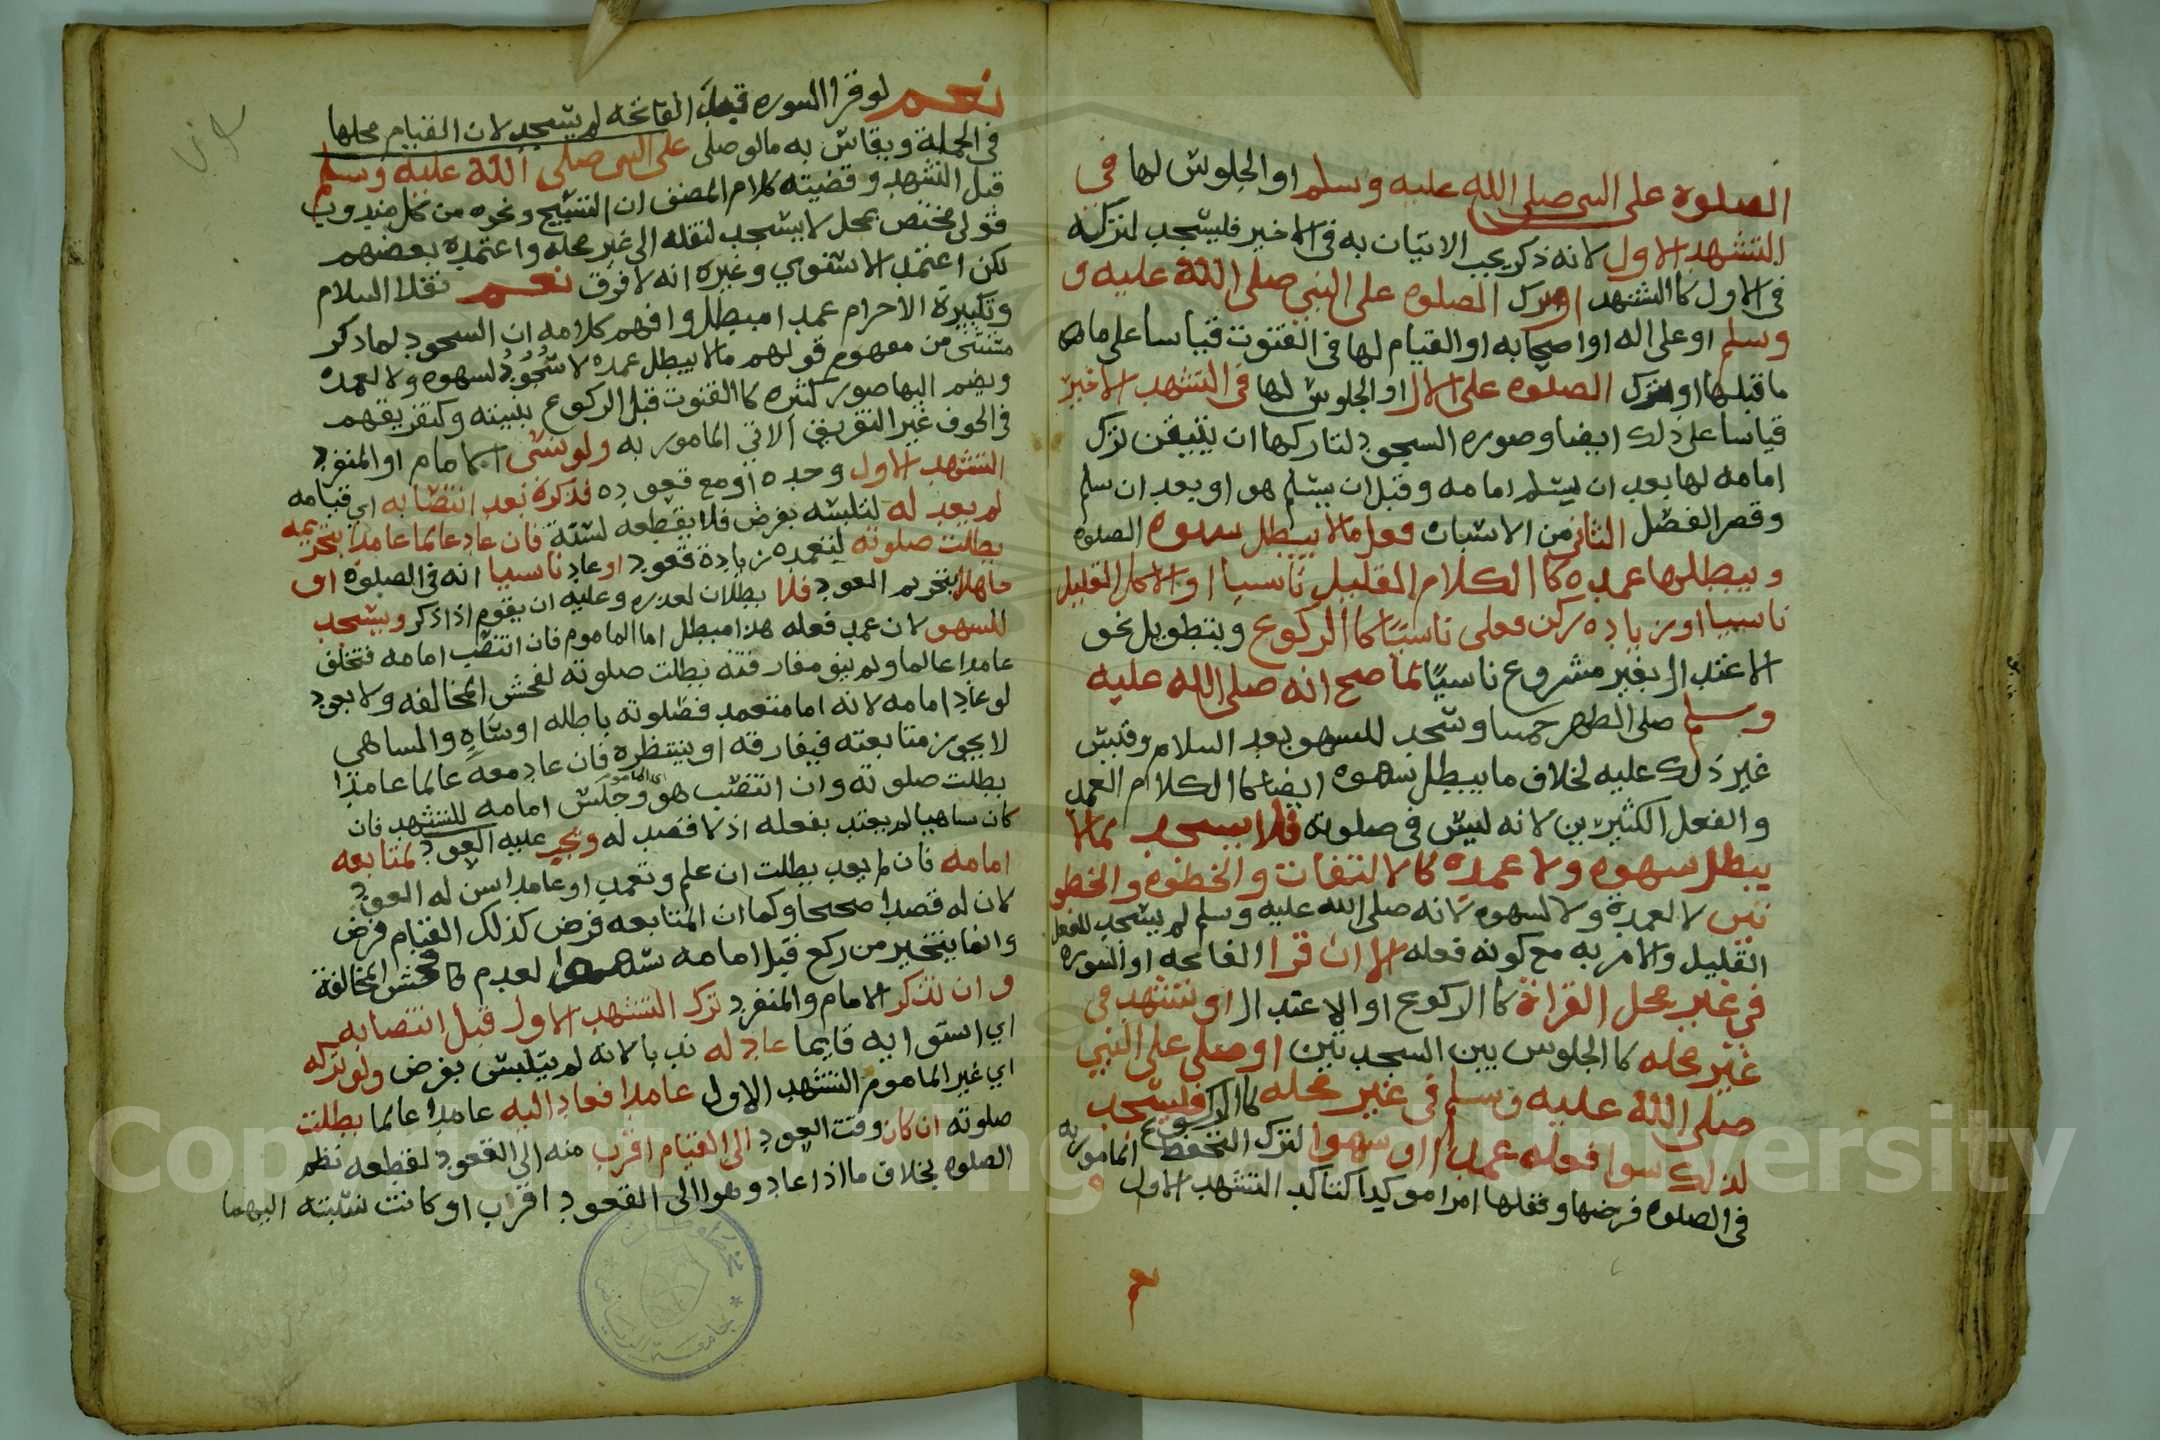 الصلوة على النبى صلى الله عليه وسلم او الجلوس لها في
التشهد الاول لانه ذكر يجب الاتيان به فى الاخير فليسجد لتركه
فى الاول كالتشهد او ترك الصلوة على النبى صلى الله عليه و
وسلم او على اله او اصحابه او القيام لها فى القنوت قياسا على ما ها
ما قبلها او ترك الصلوة على الال او الجلوس لها فى التشهد الاخير
قياسا على ذلك ايضا وصوره السجود لتاركها ان يتيقن ترك
امامه لها بعد ان يسلم امامه وقبل ان يسلم هو او بعد ان سلم
وقصر الفصل الثانى من الاسباب فعل مالا يبطل سهوه الصلوة
ويبطلها عمده كالكلام القليل ناسيا او الاكل القليل
ناسيا او زياده ركن فعلى ناسيًا كالركوع وتطويل نحو
الاعتدال بغير مشروع ناسيًا لما صح انه صلى الله عليه
وسلم صلى الظهر خمسا وسجد للسهو بعد السلام وقيس
غير ذلك عليه بخلاف ما يبطل سهوه ايضا كالكلام العمد
والفعل الكثيرين لانه ليس فى صلوة فلا يسجد لمالا
يبطل سهوه ولا عمده كالالتفات والخطوة والخطو
تين لا لعمده ولا لسهوه لانه صلى الله عليه وسلم لم يسجد للفعل
القليل والامر به مع كونه فعله الا ان قرا الفاتحه او السوره
في غير محل القراة كالركوع او الاعتدال او تشهد فى
غير محله كالجلوس بين السجدتين او صلى على النبي
صلى الله عليه وسلم فى غير محله كالركوع فليسجد
لذلك سوا فعله عمدا او سهوا لترك التحفظ المامور به
فى الصلوة فرضها ونفلها امرا موكدا كتاكد التشهد الاول
نعم لو قرا السوره قبل الفاتحه لم يسجد لان القيام محلها
فى الجملة ويقاس به ما لو صلى على النبى صلى الله عليه وسلم
قبل التشهد وقضيته كلام المصنف ان التسبيح ونحوه من كل مندوب
قولى مختص بمحل لا يسجد لنقله الى غير محله واعتمده بعضهم
لكن اعتمد الاسنوي وغيره انه لا فرق نعم نقل السلام
وتكبيرة الاحرام عمدا مبطل وافهم كلامه ان السجود لما ذكر
مستثنى من مفهوم قولهم مالا يبطل عمده لا سُجُودُ لسهوه ولا لعمده
ويضم اليها صور كثيره كالقنوت قبل الركوع بنيته وكتفريقهم
فى الخوف غير التفريق الاتي المامور به ولو نسى الامام او المنفرد
التشهد الاول وحده او مع قعوده فذكره بعد انتصابه اي قيامه
لم يعد له لتلبسه بفرض فلا يقطعه لسنة فان عاد عالما عامدا بتحريمه
بطلت صلوته لتعمده زيادة قعود او عاد ناسيا انه فى الصلوة او
جاهلا بتحريم العود فلا بطلان لعذره وعليه ان يقوم اذا ذكر ويسجد
للسهو لان عمد فعله هذا مبطل اما الماموم فان انتصب امامه فتخلف
عامدا عالما ولم ينو مفارقته بطلت صلوته لفحش المخالفه ولا يعود
لو عاد امامه لانه اما متعمد فصلوته باطله او ساهٍ والساهى
لا يجوز متابعته فيفارقه او ينتظره فان عاد معه عالما عامدا
بطلت صلوته وان انتصب هو اى الماموم وجلس امامه للتشهد فان
كان ساهيا لم يعتد بفعله اذ لا قصد له ويجب عليه العود لمتابعه
امامه فان لم يعد بطلت ان علم وتعمد او عامدا سن له العود
لان له قصدا صحيحا وكما ان المتابعه فرض كذلك القيام فرض
وانما يتخير من ركع قبل امامه سهوا لعدم فحش المخالفة
وان تذكر الامام والمنفرد ترك التشهد الاول قبل انتصابه
اي استوايه قايما عاد له ندبا لانه لم يتلبس بفرض ولو تركه
اي غير الماموم التشهد الاول عامدا فعاد اليه عامدا عالما بطلت
صلوته ان كان وقت العود الى القيام اقرب منه الي القعود لقطعه نظم
الصلوه بخلاف ما اذا عاد وهو الى القعود اقرب او كانت نسبته اليهما
Copyright © King University
مخطوطات
جامعة الرياض